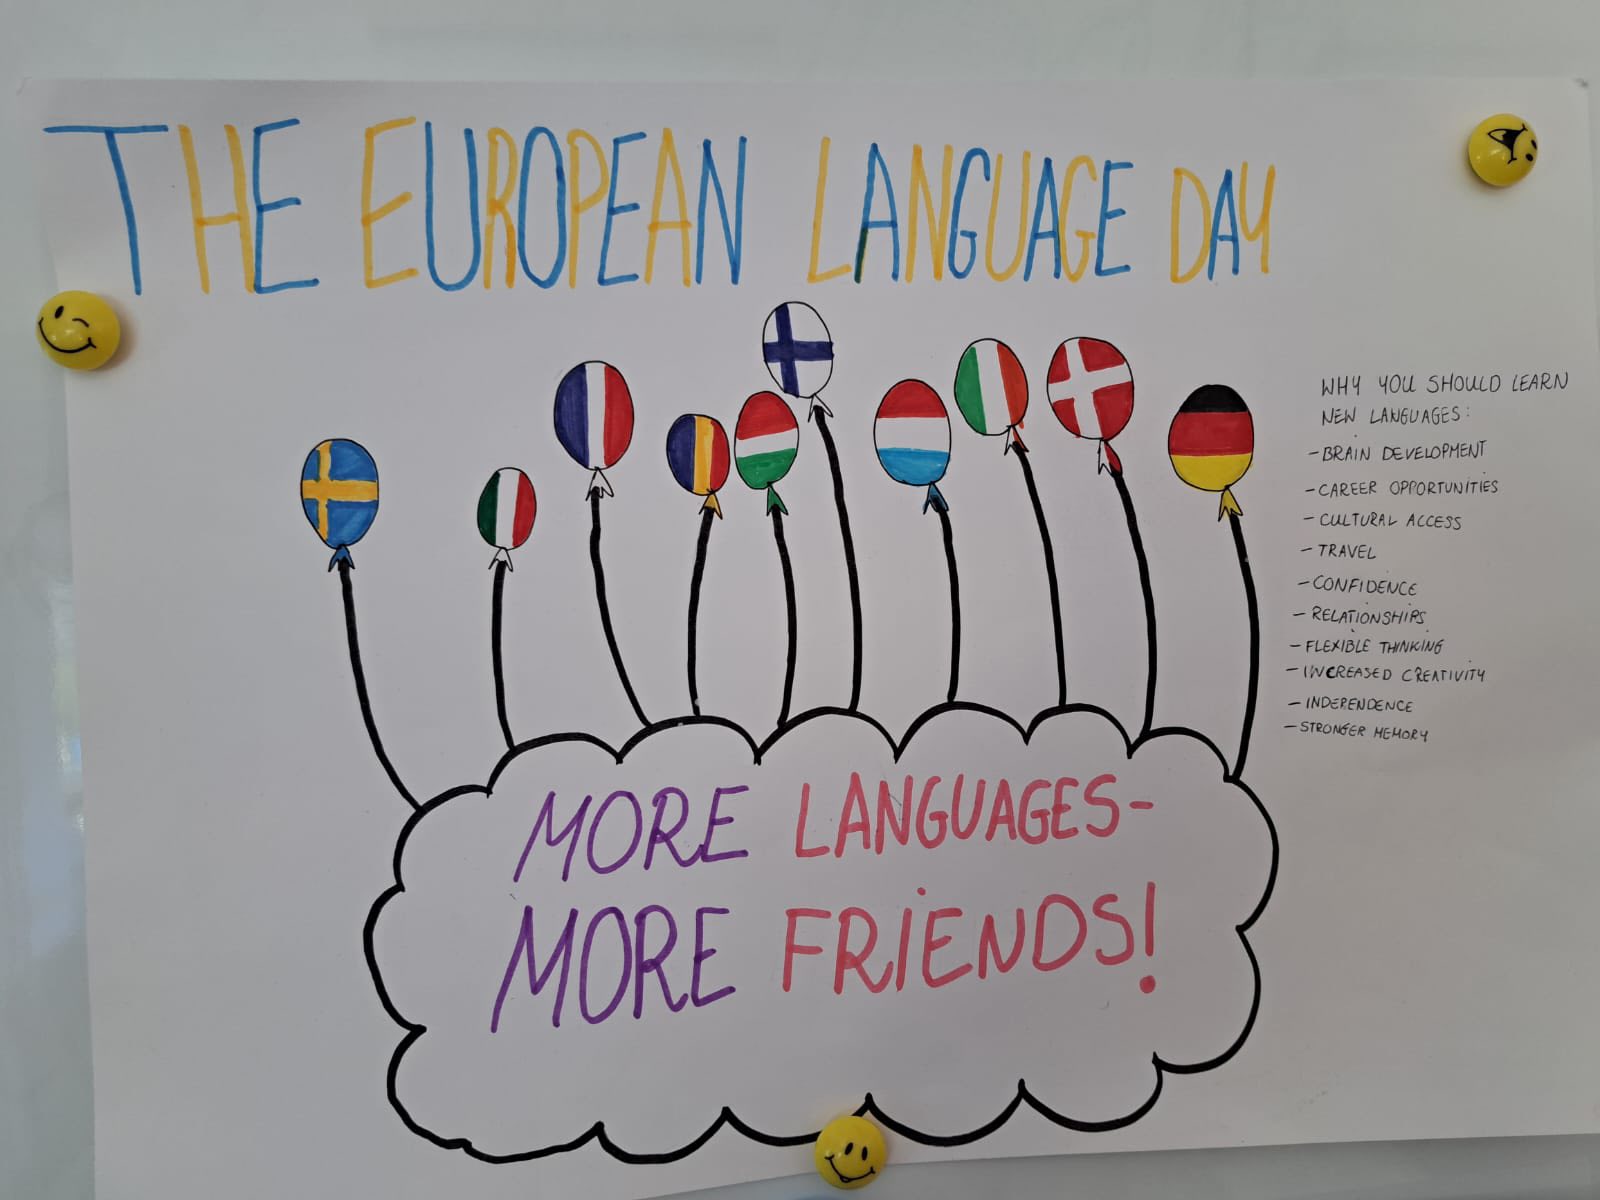 THE EUROPEAN LANGUAGE DAY
WHY YOU SHOULD LEARN
NEW LANGUAGES:
- BRAIN DEVELOPMENT
- CAREER OPPORTUNITIES
- CULTURAL ACCESS
- TRAVEL
- CONFIDENCE
- RELATIONSHIPS
- FLEXIBLE THINKING
- INCREASED CREATIVITY
- INDERENDENCE
- STRONGER MEMORY
MORE LANGUAGES-
MORE FRIENDS!